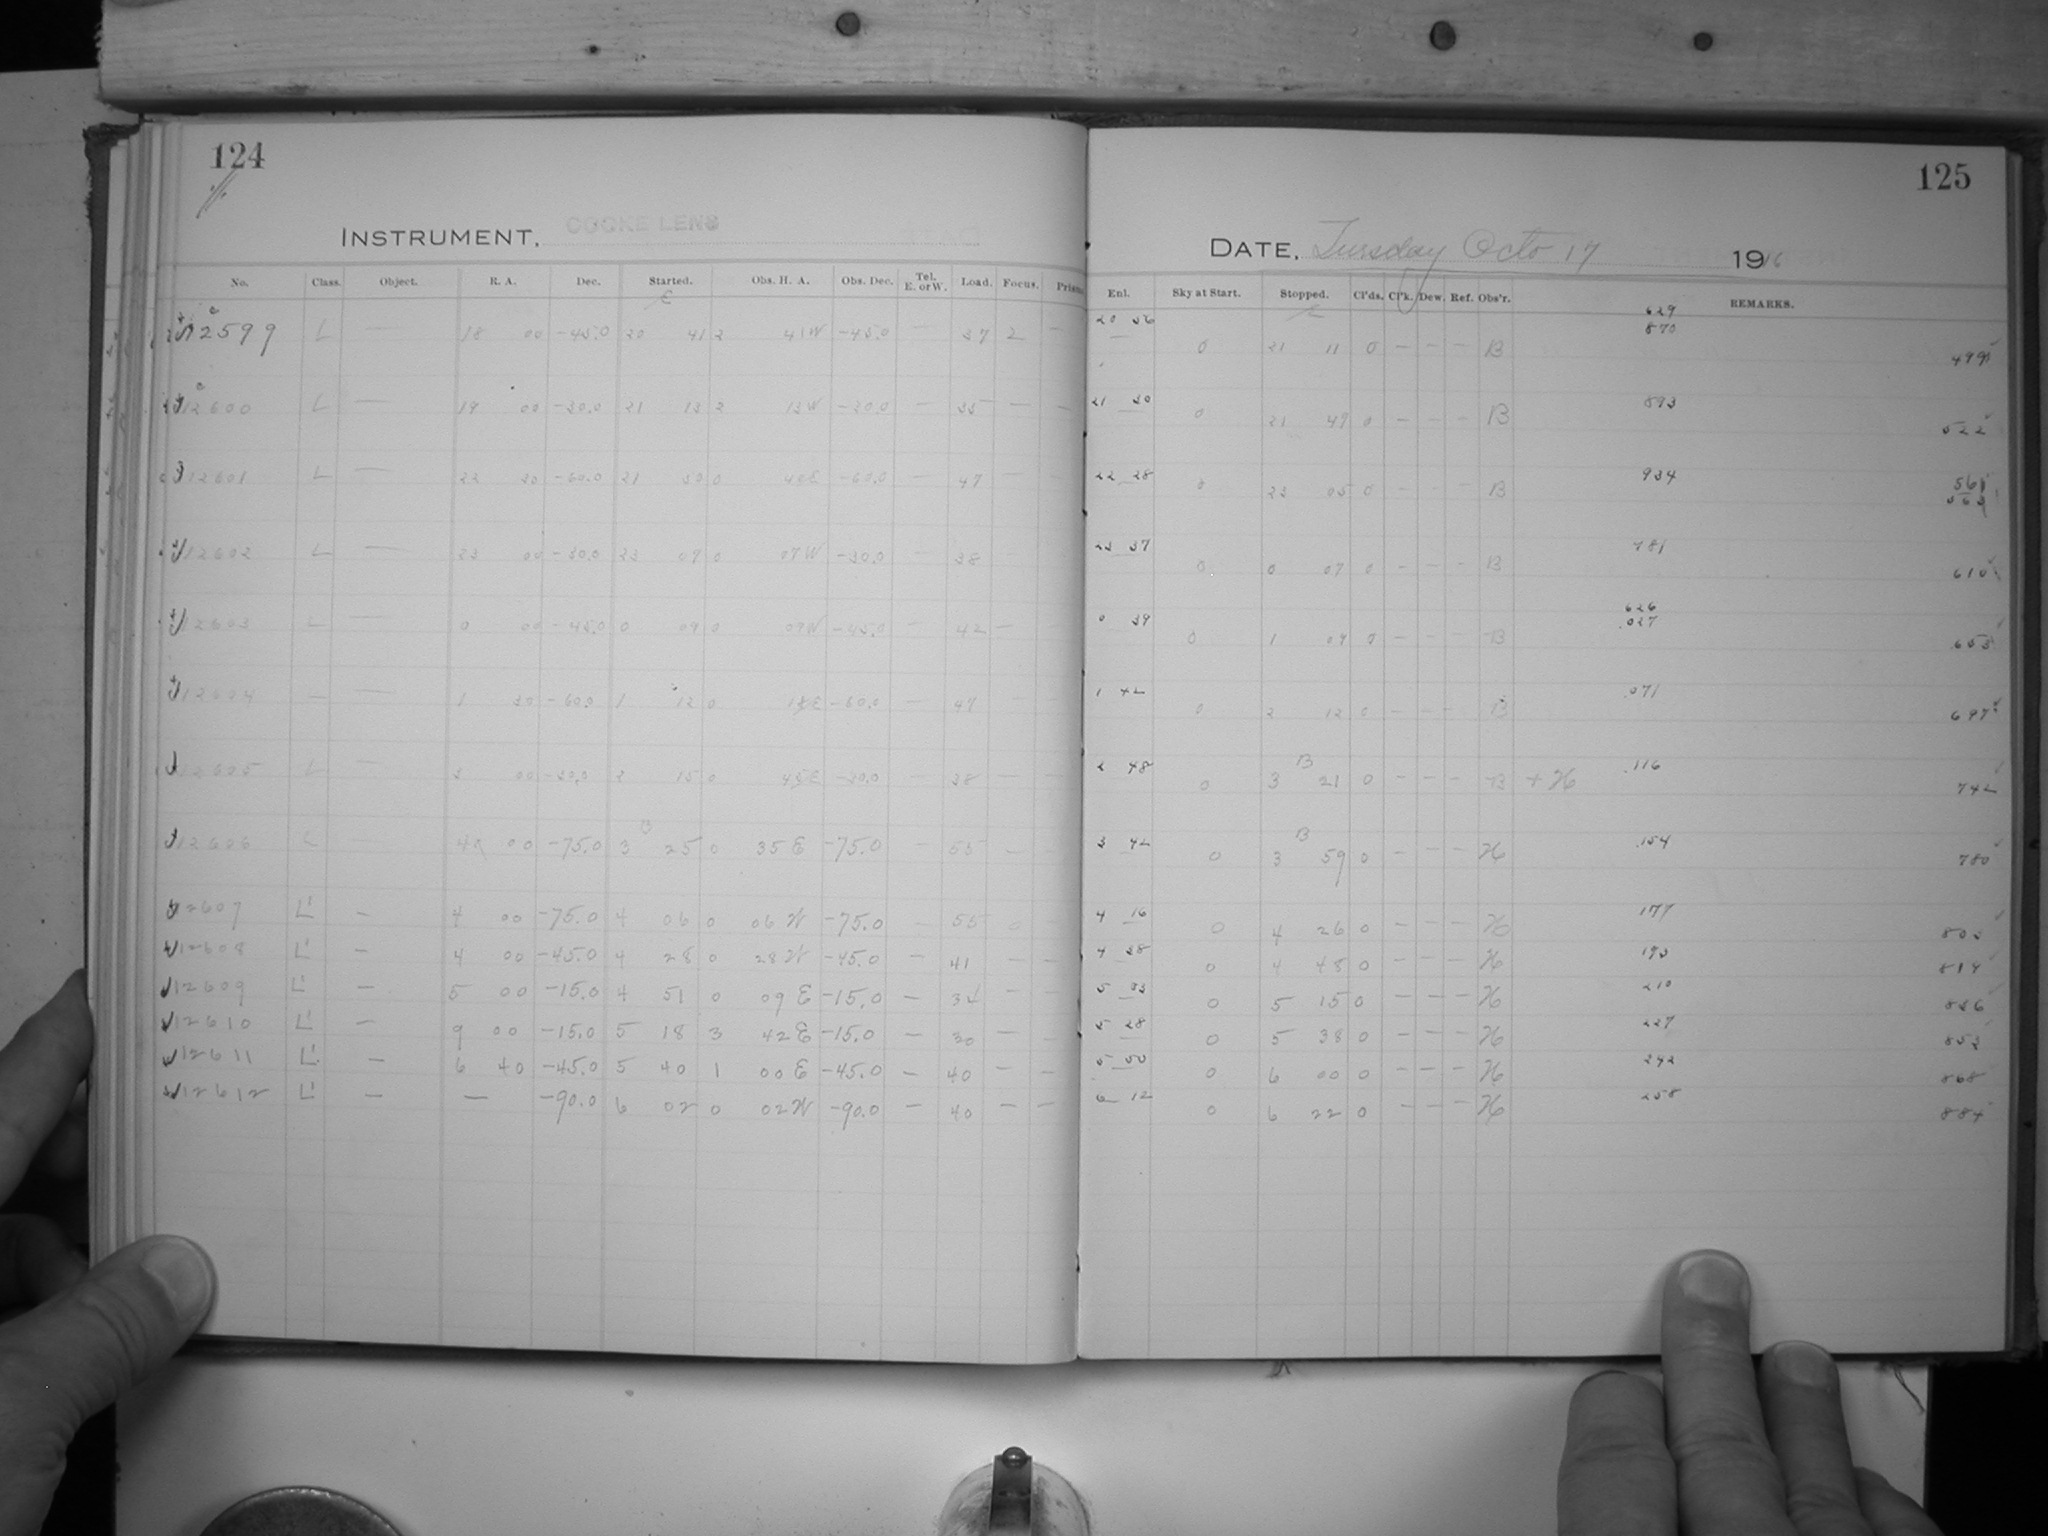 124
INSTRUMENT, COOKE LENS
No. Class. Object. R. A. Dec. Started. Obs. H. A. Obs. Dec. Tel. E. or W. Load. Focus. Prism
12599 L — 18 00 -45.0 20 41 2 41W -45.0 37 2 —
12600 L — 19 00 -30.0 21 13 2 13W -30.0 — 35 — —
12601 L — 22 30 -60.0 21 50 0 40E -60.0 — 47 —
12602 L — 23 00 -30.0 23 07 0 07W -30.0 — 38
12603 L — 0 00 -45.0 0 09 0 09W -45.0 — 42 —
12604 — — 1 30 -60.0 1 12 0 18E -60.0 — 47
12605 L 3 00 -30.0 2 15 0 45E -30.0 — 38 —
12606 L 4 00 -75.0 3 25 0 35E -75.0 — 55 —
12607 L' — 4 00 -75.0 4 06 0 06W -75.0 — 55
12608 L' — 4 00 -45.0 4 28 0 28W -45.0 — 41 — —
12609 L' — 5 00 -15.0 4 51 0 09E -15.0 — 34 — —
12610 L' — 9 00 -15.0 5 18 3 42E -15.0 — 30 — —
12611 L' — 6 40 -45.0 5 40 1 00E -45.0 — 40 — —
12612 L' — — -90.0 6 02 0 02W -90.0 — 40 — —
125
DATE, Tuesday Octo 17 1916
Enl. Sky at Start. Stopped. Cl'ds. Cl'k. Dew. Ref. Obs'r. REMARKS.
629
20 56 0 21 11 0 — — — B 870 499
21 30 0 21 47 0 — — — B 893 522
22 28 0 23 05 0 — — — B 934 561
563
23 37 0 0 07 0 — — — B 981 610
626
0 39 0 1 09 0 — — — B .027 653
1 42 0 2 12 0 — — — B .071 697
B
2 48 0 3 21 0 — — — B + H .116 742
B
3 42 0 3 59 0 — — — H .154 780
4 16 0 4 26 0 — — — H 177 803
4 38 0 4 48 0 — — — H 193 819
5 03 0 5 15 0 — — — H 210 836
5 28 0 5 38 0 — — — H 227 853
5 50 0 6 00 0 — — — H 242 868
6 12 0 6 22 0 — — — H 258 884